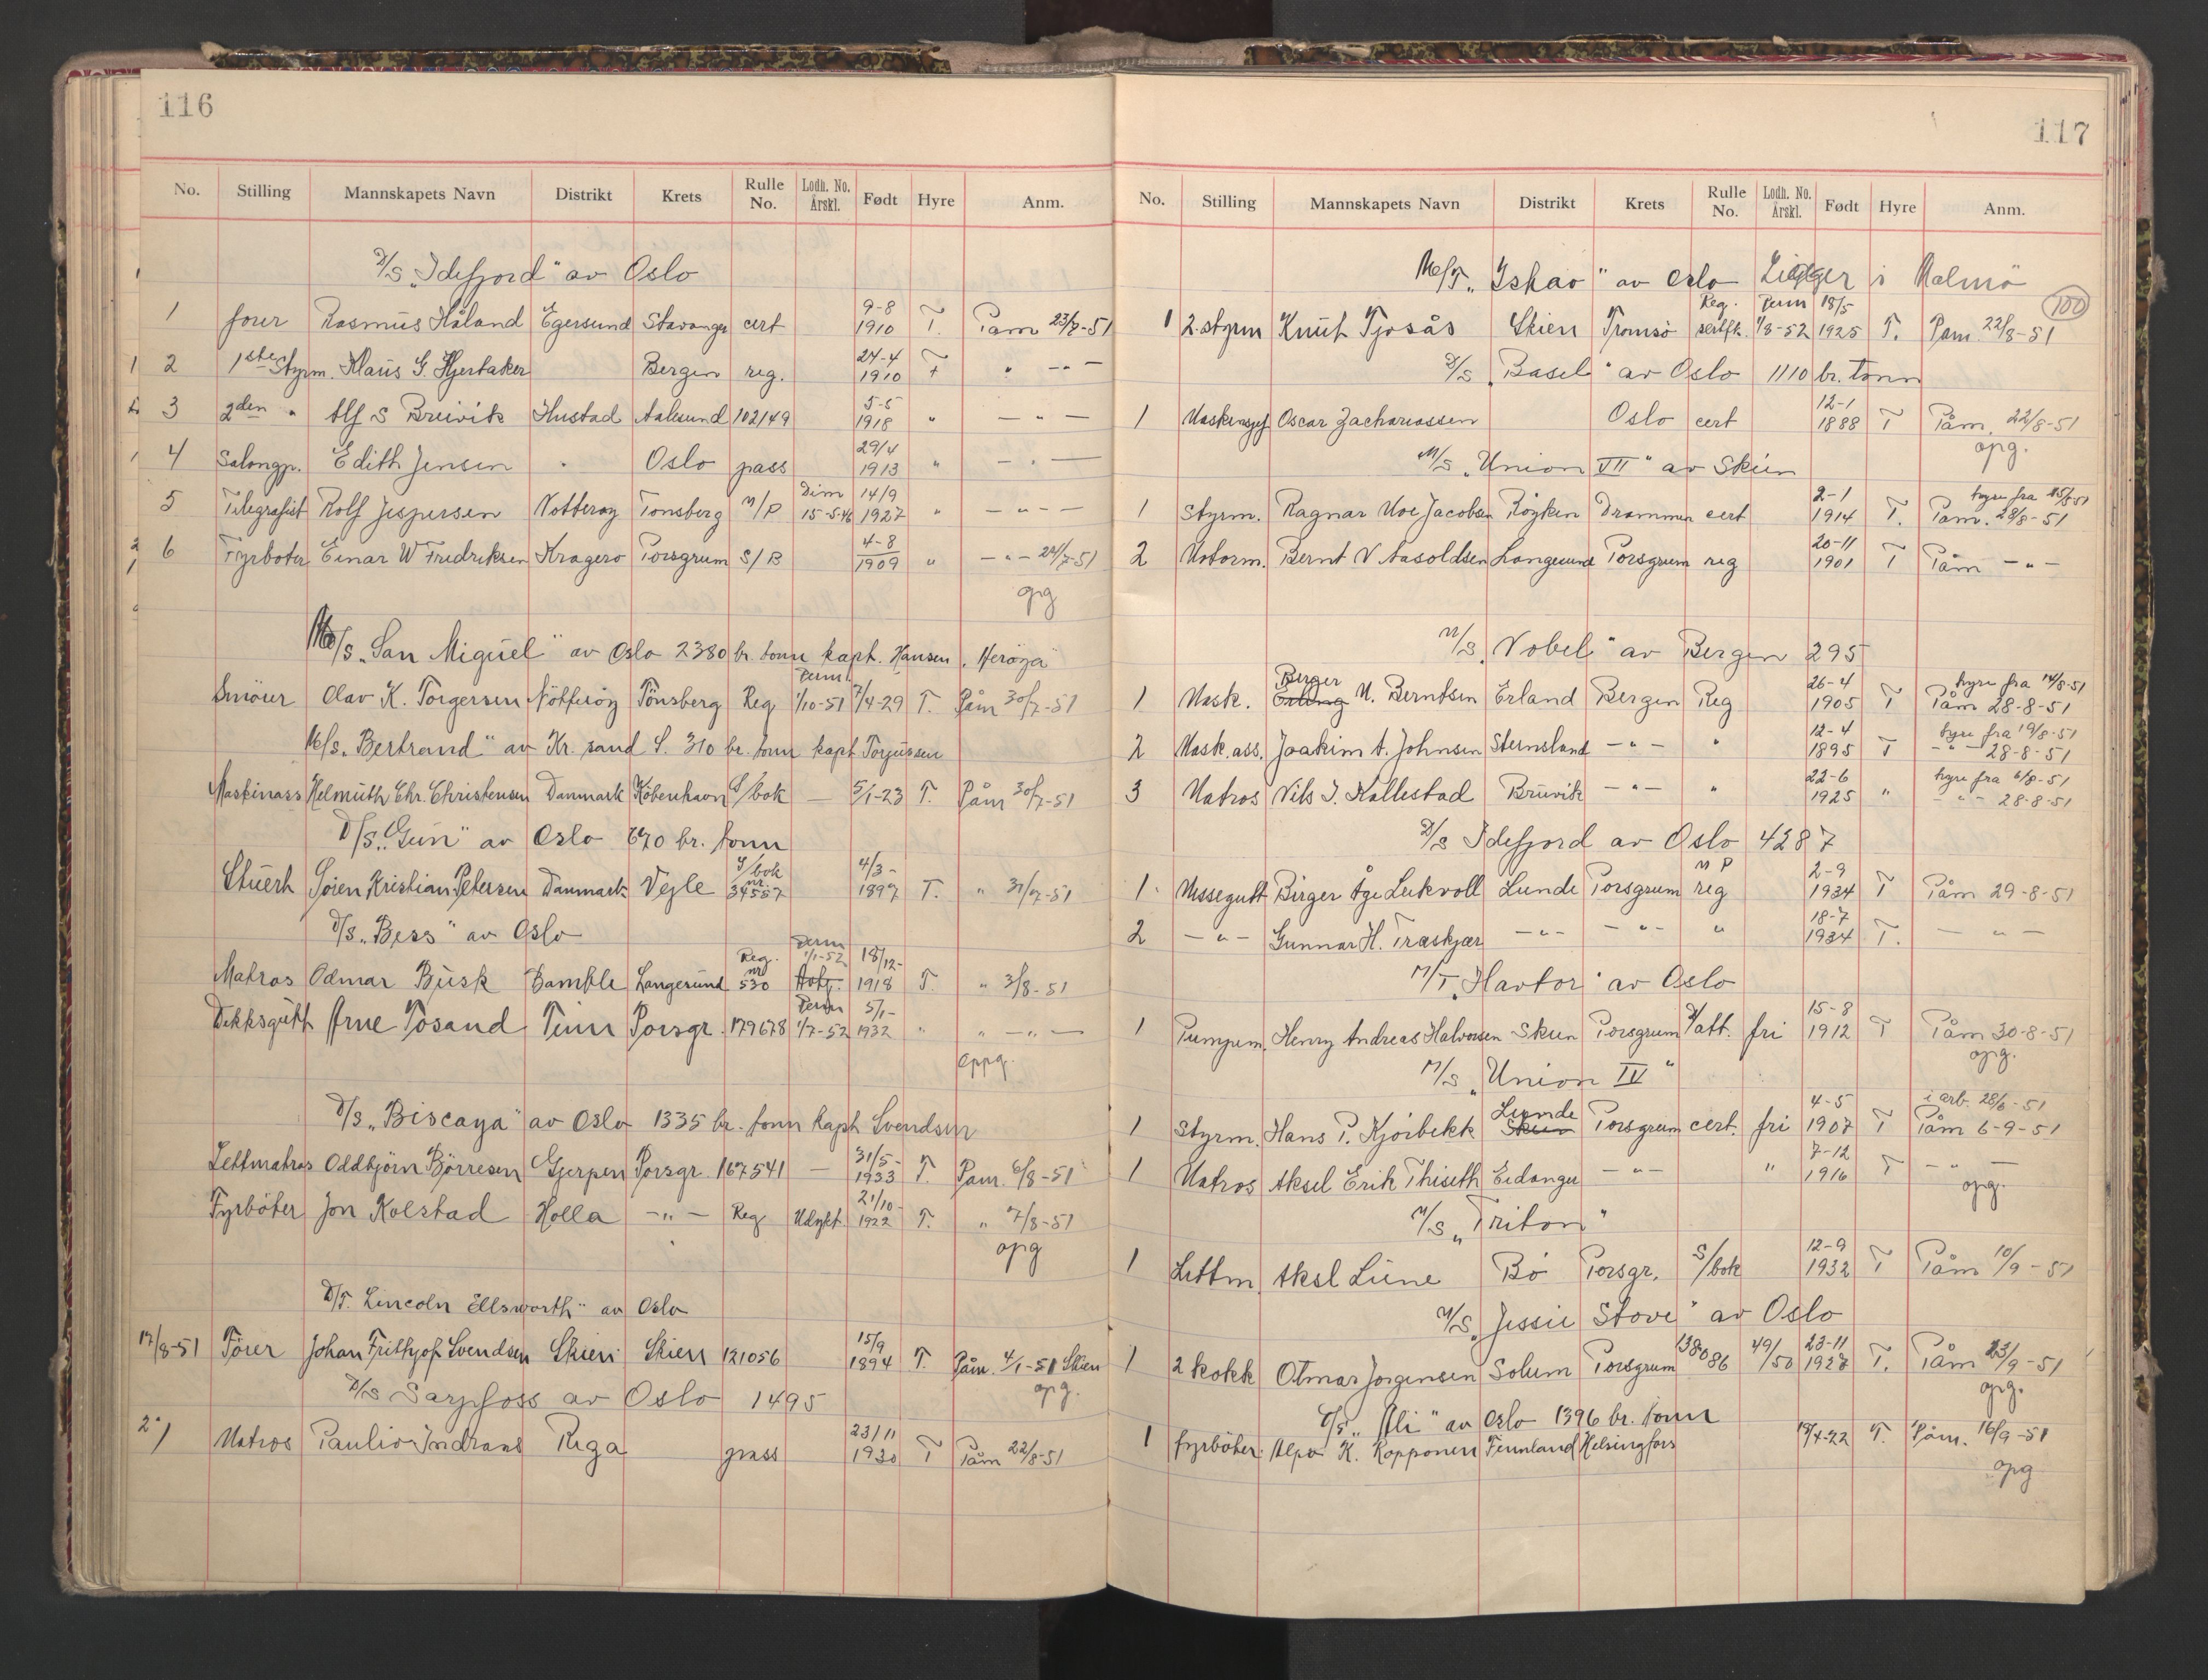 116
No. Stilling Mannskapets Navn Distrikt Krets Rulle No. Lodh. No. Årskl. Født Hyre Anm.
D/S „Idefjord" av Oslo
1 fører Rasmus Håland Egersund Stavanger cert 9-8 1910 T. Påm 23/7-51
2 1ste Styrm. Klaus G. Hjertaker Bergen reg. 24-4 1910 T " — " —
3 2den " Alf S Breivik Hustad Aalesund 102149 5-5 1918 " — " —
4 Salongp. Edith Jensen " Oslo pass 29/4 1913 " — " —
5 Telegrafist Rolf Jespersen Nøtterøy Tønsberg M/P Dim 15-5-46 14/9 1927 " — " —
6 Fyrbøter Einar W Fredriksen Kragerø Porsgrunn S/B 4-8 1909 " — " — 24/7-51
opg
M/S „San Miguel" av Oslo 2380 br. tonn kapt. Hansen, Herøya
Smører Olav K. Torgersen Nötteröy Tönsberg Reg Perm. 1/10-51 7/4-29 T. Påm 30/7-51
M/S „Bertrand" av Kr. sand S. 310 br. tonn kapt Torjussen
Maskinass Helmuth Chr. Christensen Danmark Köbenhavn S/bok — 5/1-23 T. Påm 30/7-51
D/S „Gun" av Oslo 670 br. tonn
Stuert Sören Kristian Petersen Danmark Vejle S/bok nr. 34557 4/3- 1897 T. " 31/7-51
D/S „Bess" av Oslo
Matros Odmar Busk Bamble Langesund Reg. nr 530 Perm 1/1-52 18/12- 1918 T. " 3/8-51
Dekksgutt Arne Tosand Tinn Porsgr. 179678 Perm 1/7-52 5/1- 1932 " " — " —
oppg.
D/S „Biscaya" av Oslo 1335 br. tonn kapt Svendsen
Lettmatros Oddbjörn Björresen Gjerpen Porsgr. 167541 — 31/5- 1933 T. Påm. 6/8-51
Fyrböter Jon Kolstad Holla — " — Reg Udykt 21/10- 1922 T. " 7/8-51
opg
D/T. Lincoln Ellsworth" av Oslo
17/8-51 Förer Johan Frithjof Svendsen Skien Skien 121056 15/9 1894 T. Påm. 4/1-51 Skien
opg.
D/S Sarpfoss av Oslo 1495
1 Matros Paulis Indrans Riga pass 23/11 1930 T Påm 22/8-51
117
No. Stilling Mannskapets Navn Distrikt Krets Rulle No. Lodh. No. Årskl. Født Hyre Anm.
M/T „Iskav" av Oslo Ligger i Malmö
100
1 2. styrm Knut Tjosås Skien Tromsö Reg. sertfk. Perm 1/8-52 18/5 1925 T. Påm. 22/8-51
D/S „Basel" av Oslo 1110 br. tonn
1 Maskinsjef Oscar Zachariassen Oslo cert 12-1 1888 T Påm. 22/8-51
opg.
M/S „Union VII" av Skien
1 Styrm. Ragnar Moe Jacobsen Røyken Drammen cert 2-1 1914 T. hyre fra 15/8-51 Påm. 28/8-51
2 Motorm. Bernt N Aasoldsen Langesund Porsgrunn reg 20-11 1901 T Påm — " —
M/S „Nobel" av Bergen 295
1 Mask. Erling Berger M. Berntsen Erland Bergen Reg 26-4 1905 T hyre fra 14/8-51 Påm 28-8-51
2 Mask. ass. Joakim A. Johnsen Sternsland — " — " 12-4 1895 T hyre fra 19/8-51 — " — 28-8-51
3 Matros Nils J. Kallestad Bruvik — " — " 22-6 1925 " hyre fra 6/8-51 — " — 28-8-51
D/S Idefjord av Oslo 4287
1. Messegutt Birger Åge Leikvoll Lunde Porsgrunn M P reg 2-9 1934 T Påm 29-8-51
2 — " — Gunnar H. Træskjær — " — — " — " 18-7 1934 T. — " —
M/T „Havtor" av Oslo
1 Pumpem. Henry Andreas Halvorsen Skien Porsgrunn S/att. fri 15-8 1912 T Påm 30-8-51
opg.
M/S „Union IV"
1 Styrm. Hans P. Kjørbekk Skien Lunde Porsgrunn cert. fri 4-5 1907 T i arb. 28/6-51 Påm 6-9-51
1 Matros Aksel Erik Thiseth Eidanger — " — " 7-12 1916 T — " —
opg.
M/S „Triton"
1 Lettm. Aksl Lune Bø Porsgr. S/bok 12-9 1932 T Påm 10/9-51
M/S „Jessie Stove" av Oslo
1 2 kokk Otmar Jørgensen Solum Porsgrunn 138086 49/50 23-11 1928 T. Påm 13/9-51
opg.
D/S „Ali" av Oslo 1396 br. tonn
1 fyrböter Alpo K. Kopponen Finnland Helsingfors 19/4-22 T. Påm. 16/9-51
opg